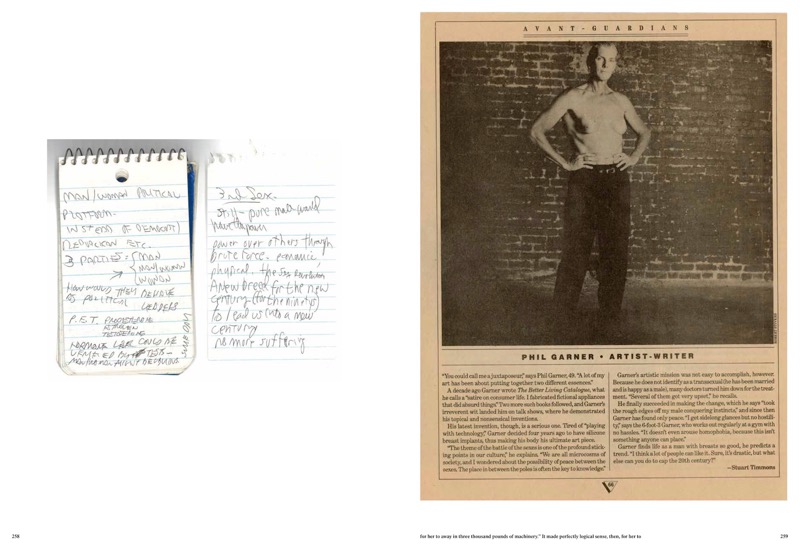 MAN/WOMAN POLITICAL
PLATFORM-
INSTEAD OF DEMOCRAT/
REPUBLICAN ETC.
3 PARTIES: MAN
MAN/WOMAN
WOMAN
HOW WOULD THEY
AS POLITICAL LEADERS
P.E.T.
HORMONE LEVEL COULD BE
3rd Sex.
Still - pure male would
have the power
power over others through
brute force. economic,
physical. the
A new breed for the new
century (for the nineties)
to lead us into a new
century
no more suffering
AVANT-GUARDIANS
PHIL GARNER • ARTIST-WRITER
"You could call me a juxtaposeur," says Phil Garner, 49. "A lot of my
art has been about putting together two different essences."
A decade ago Garner wrote The Better Living Catalogue, what
he calls a "satire on consumer life. I fabricated fictional appliances
that did absurd things." Two more such books followed, and Garner's
irreverent wit landed him on talk shows, where he demonstrated
his topical and nonsensical inventions.
His latest invention, though, is a serious one. Tired of "playing
with technology," Garner decided four years ago to have silicone
breast implants, thus making his body his ultimate art piece.
"The theme of the battle of the sexes is one of the profound stick-
ing points in our culture," he explains. "We are all microcosms of
society, and I wondered about the possibility of peace between the
sexes. The place in between the poles is often the key to knowledge."
Garner's artistic mission was not easy to accomplish, however.
Because he does not identify as a transsexual (he has been married
and is happy as a male), many doctors turned him down for the treat-
ment. "Several of them got very upset," he recalls.
He finally succeeded in making the change, which he says "took
the rough edges off my male conquering instincts," and since then
Garner has found only peace. "I get sidelong glances but no hostili-
ty," says the 6-foot-3 Garner, who works out regularly at a gym with
no hassles. "It doesn't even arouse homophobia, because this isn't
something anyone can place."
Garner finds life as a man with breasts so good, he predicts a
trend. "I think a lot of people can like it. Sure, it's drastic, but what
else can you do to cap the 20th century?"
—Stuart Timmons
258
for her to away in three thousand pounds of machinery." It made perfectly logical sense, then, for her to
259